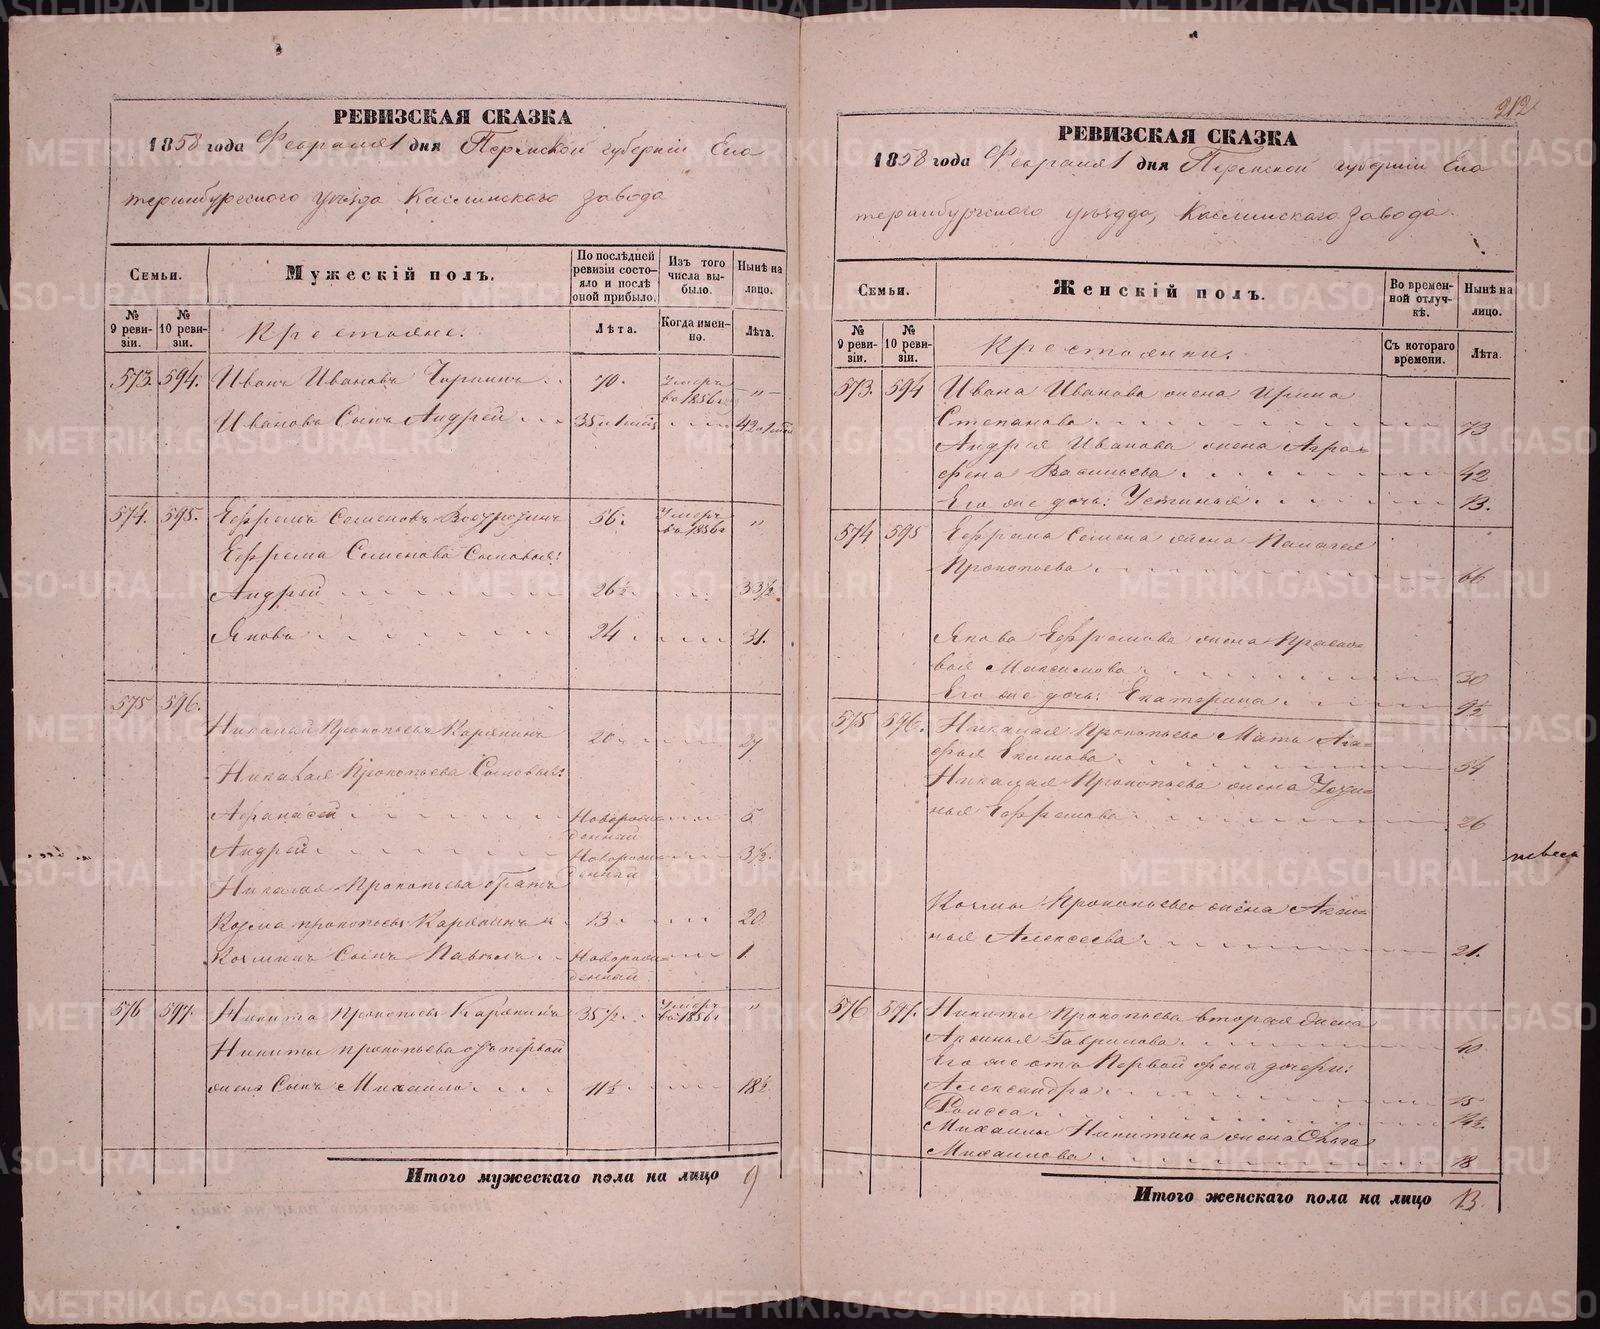 РЕВИЗСКАЯ СКАЗКА
1858 года Февраля 1 дня Пермской губерніи Ека
теринбургскаго уѣзда Каслинскаго завода
Семьи.
Мужескій полъ.
По послѣдней ревизіи состояло и послѣ оной прибыло.
Изъ того числа выбыло.
Нынѣ на лицо.
№ 9 ревизіи.
№ 10 ревизіи.
Крестьяне.
Лѣта.
Когда именно.
Лѣта.
573. 594. Иванъ Ивановъ 70. Умеръ въ 1856 г. "
Ивановъ Сынъ Андрей 35 42
574. 595. Ефремъ Семеновъ 56. Умеръ въ 1856 г "
Ефрема Семенова Сыновья:
Андрей 26½ 33½
Яковъ 24 31.
575 596.
Николай Прокопьевъ Карякинъ 20 27
Николая Прокопьева Сыновья:
Афанасей Новорожденный 5.
Андрей Новорожденный 3½.
Николая Прокопьева братъ
Козма Прокопьевъ Карякинъ 13 20
Козминъ Сынъ Павелъ Новорожденный 1.
576 597. Никита Прокопьевъ Карякинъ 35½ Умеръ въ 1856 г "
Никиты Прокопьева отъ первой
жены Сынъ Михаило 11½ 18½
Итого мужескаго пола на лицо 9
212
РЕВИЗСКАЯ СКАЗКА
1858 года Февраля 1 дня Пермской губерніи Ека
теринбургскаго уѣзда, Каслинскаго завода.
Семьи.
Женскій полъ.
Во временной отлучкѣ.
Нынѣ на лицо.
№ 9 ревизіи.
№ 10 ревизіи.
Крестьянки.
Съ котораго времени.
Лѣта.
573. 594 Ивана Иванова жена Ирина
Степанова 73
Андрея Иванова жена Агра-
фена Васильева 42
Его же дочь: Устинья 13.
574 595 Ефрема Семена жена Палагея
Прокопьева 66
Якова Ефремова жена Праско-
вья Максимова 30
Его же дочь: Екатерина 9½
575 596. Николая Прокопьева Мать Ага-
фья Екимова 54
Николая Прокопьева жена
Ефремова 26
Козмы Прокопьева жена Акси-
нья Алексеева 21.
576 597. Никиты Прокопьева вторая жена
Аксинья Гаврилова 40
Его же отъ Первой жены дочери:
Александра 15
Раисса 14½.
Михаилы Никитина жена Ольга
Михаилова 18
Итого женскаго пола на лицо 13.
METRIKI.GASO-URAL.RU